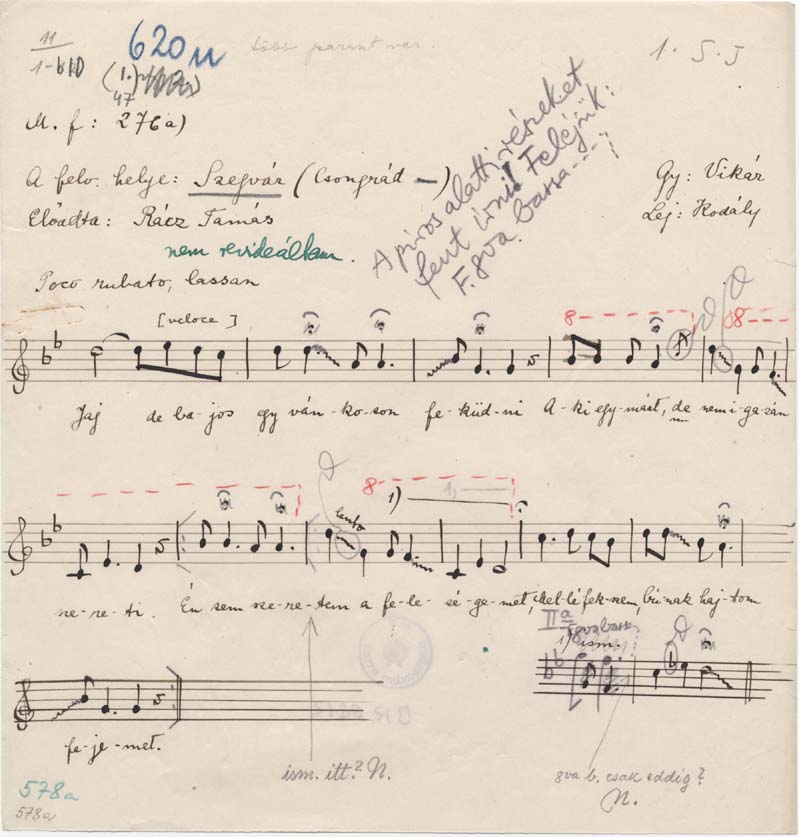 11
1-b10
620
több
1. S. J
(1.)
47
M. f: 276a)
A pirosalatti részeket
fent írni! Feléjük:
F. 8va. bassa----;
A felv. helye: Szegvár (Csongrád —)
Gy: Vikár
Előadta: Rácz Tamás
Lej: Kodály
nem revideáltam.
Poco rubato, lassan
[veloce]
8
8
Jaj de ba-jos egy ván-ko-son fe-küd-ni A-ki egy-mást, de nem i-ga-zán
8
1)
lento
sze-re-ti. Én sem sze-re-tem a fe-le-sé-ge-met, Mel-lé fek-szem, bú-nak haj-tom
IIa
8va bassa
1) ism.
fe-je-met.
ism. itt? N.
8va b. csak eddig?
N.
578a
578a